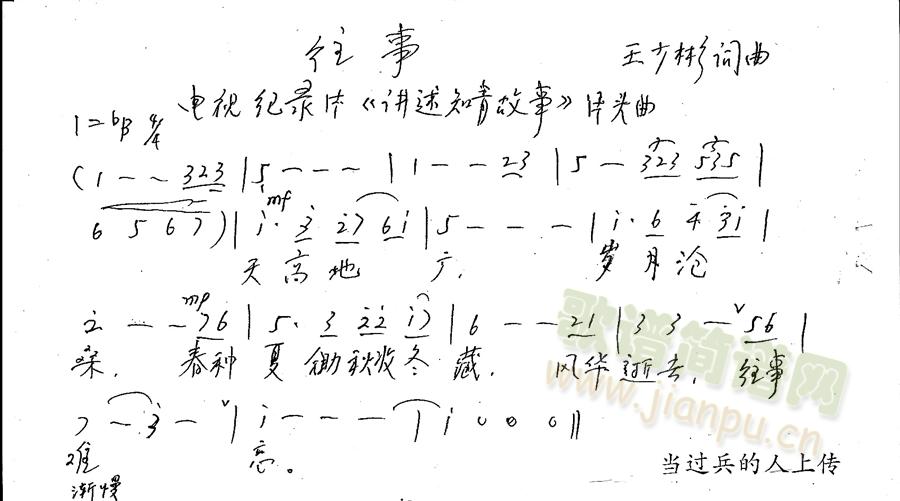 往事
王少彬词曲
电视纪录片《讲述知青故事》片头曲
1=bB 4/4
(1 - - 323 | 5 - - - | 1 - - 23 | 5 - 323 535 |
mf
6 5 6 7) | i· 3 27 6i | 5 - - - | i· 6 4 3i |
天高地广. 岁月沧
mp
2 - - 76 | 5· 3 22 i7 | 6 - - 21 | 3 3 - v 56 |
桑. 春种夏锄秋收冬藏. 风华逝去, 往事
7 - 3 - v | i - - - | i 0 0 0 ‖
难 忘。
渐慢
歌谱简谱网
www.jianpu.cn
当过兵的人上传